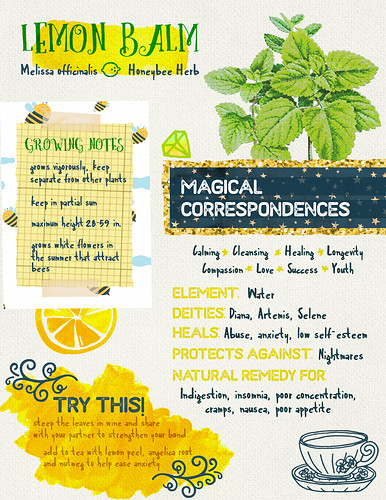 LEMON BALM
Melissa officinalis Honeybee Herb
GROWING NOTES
grows vigorously, keep
separate from other plants
keep in partial sun
maximum height 28-59 in.
grows white flowers in
the summer that attract
bees
MAGICAL
CORRESPONDENCES
Calming Cleansing Healing Longevity
Compassion Love Success Youth
ELEMENT: Water
DEITIES: Diana, Artemis, Selene
HEALS: Abuse, anxiety, low self-esteem
PROTECTS AGAINST: Nightmares
NATURAL REMEDY FOR:
Indigestion, insomnia, poor concentration,
cramps, nausea, poor appetite
TRY THIS!
steep the leaves in wine and share
with your partner to strengthen your bond
add to tea with lemon peel, angelica root
and nutmeg to help ease anxiety